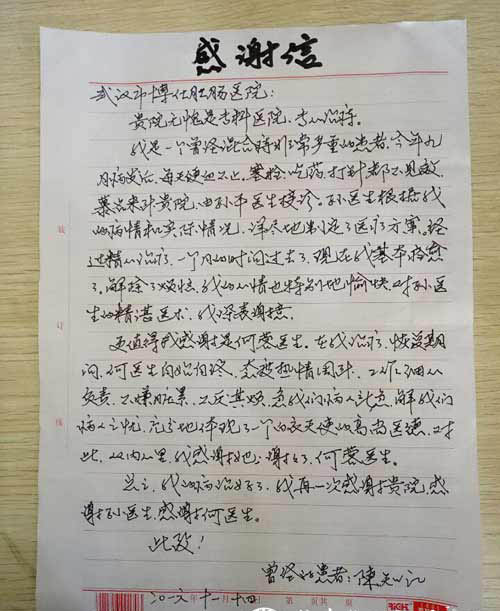 感谢信
武汉市博仕肛肠医院：
贵院无愧是专科医院、专心治痔。
我是一个曾经混合痔非常严重的患者，今年九
月病发后，每天便血不止，塞栓、吃药、打针都不见效，
慕名来到贵院，由孙平医生接诊。孙医生根据我
的病情和实际情况，详尽地制定了医疗方案。经
过精心治疗，一个月的时间过去了，现在我基本痊愈
了。解除了烦恼，我的心情也特别地愉快。对孙医
生的精湛医术，我深表谢意。
更值得我感谢是何蓉医生。在我治疗、恢复期
间，何医生自始自终，态度热情周到，工作细心
负责，不嫌脏累，不厌其烦，急我们病人之急，解我们
病人之忧，充分地体现了一个白衣天使的高尚医德，对
此，从内心里，我感谢她：谢谢了，何蓉医生。
总之，我的病治好了，我再一次感谢贵院，感
谢孙医生，感谢何医生。
此致！
曾经的患者：陈
二〇一六年十一月十四
装
订
线
第 页 共 页